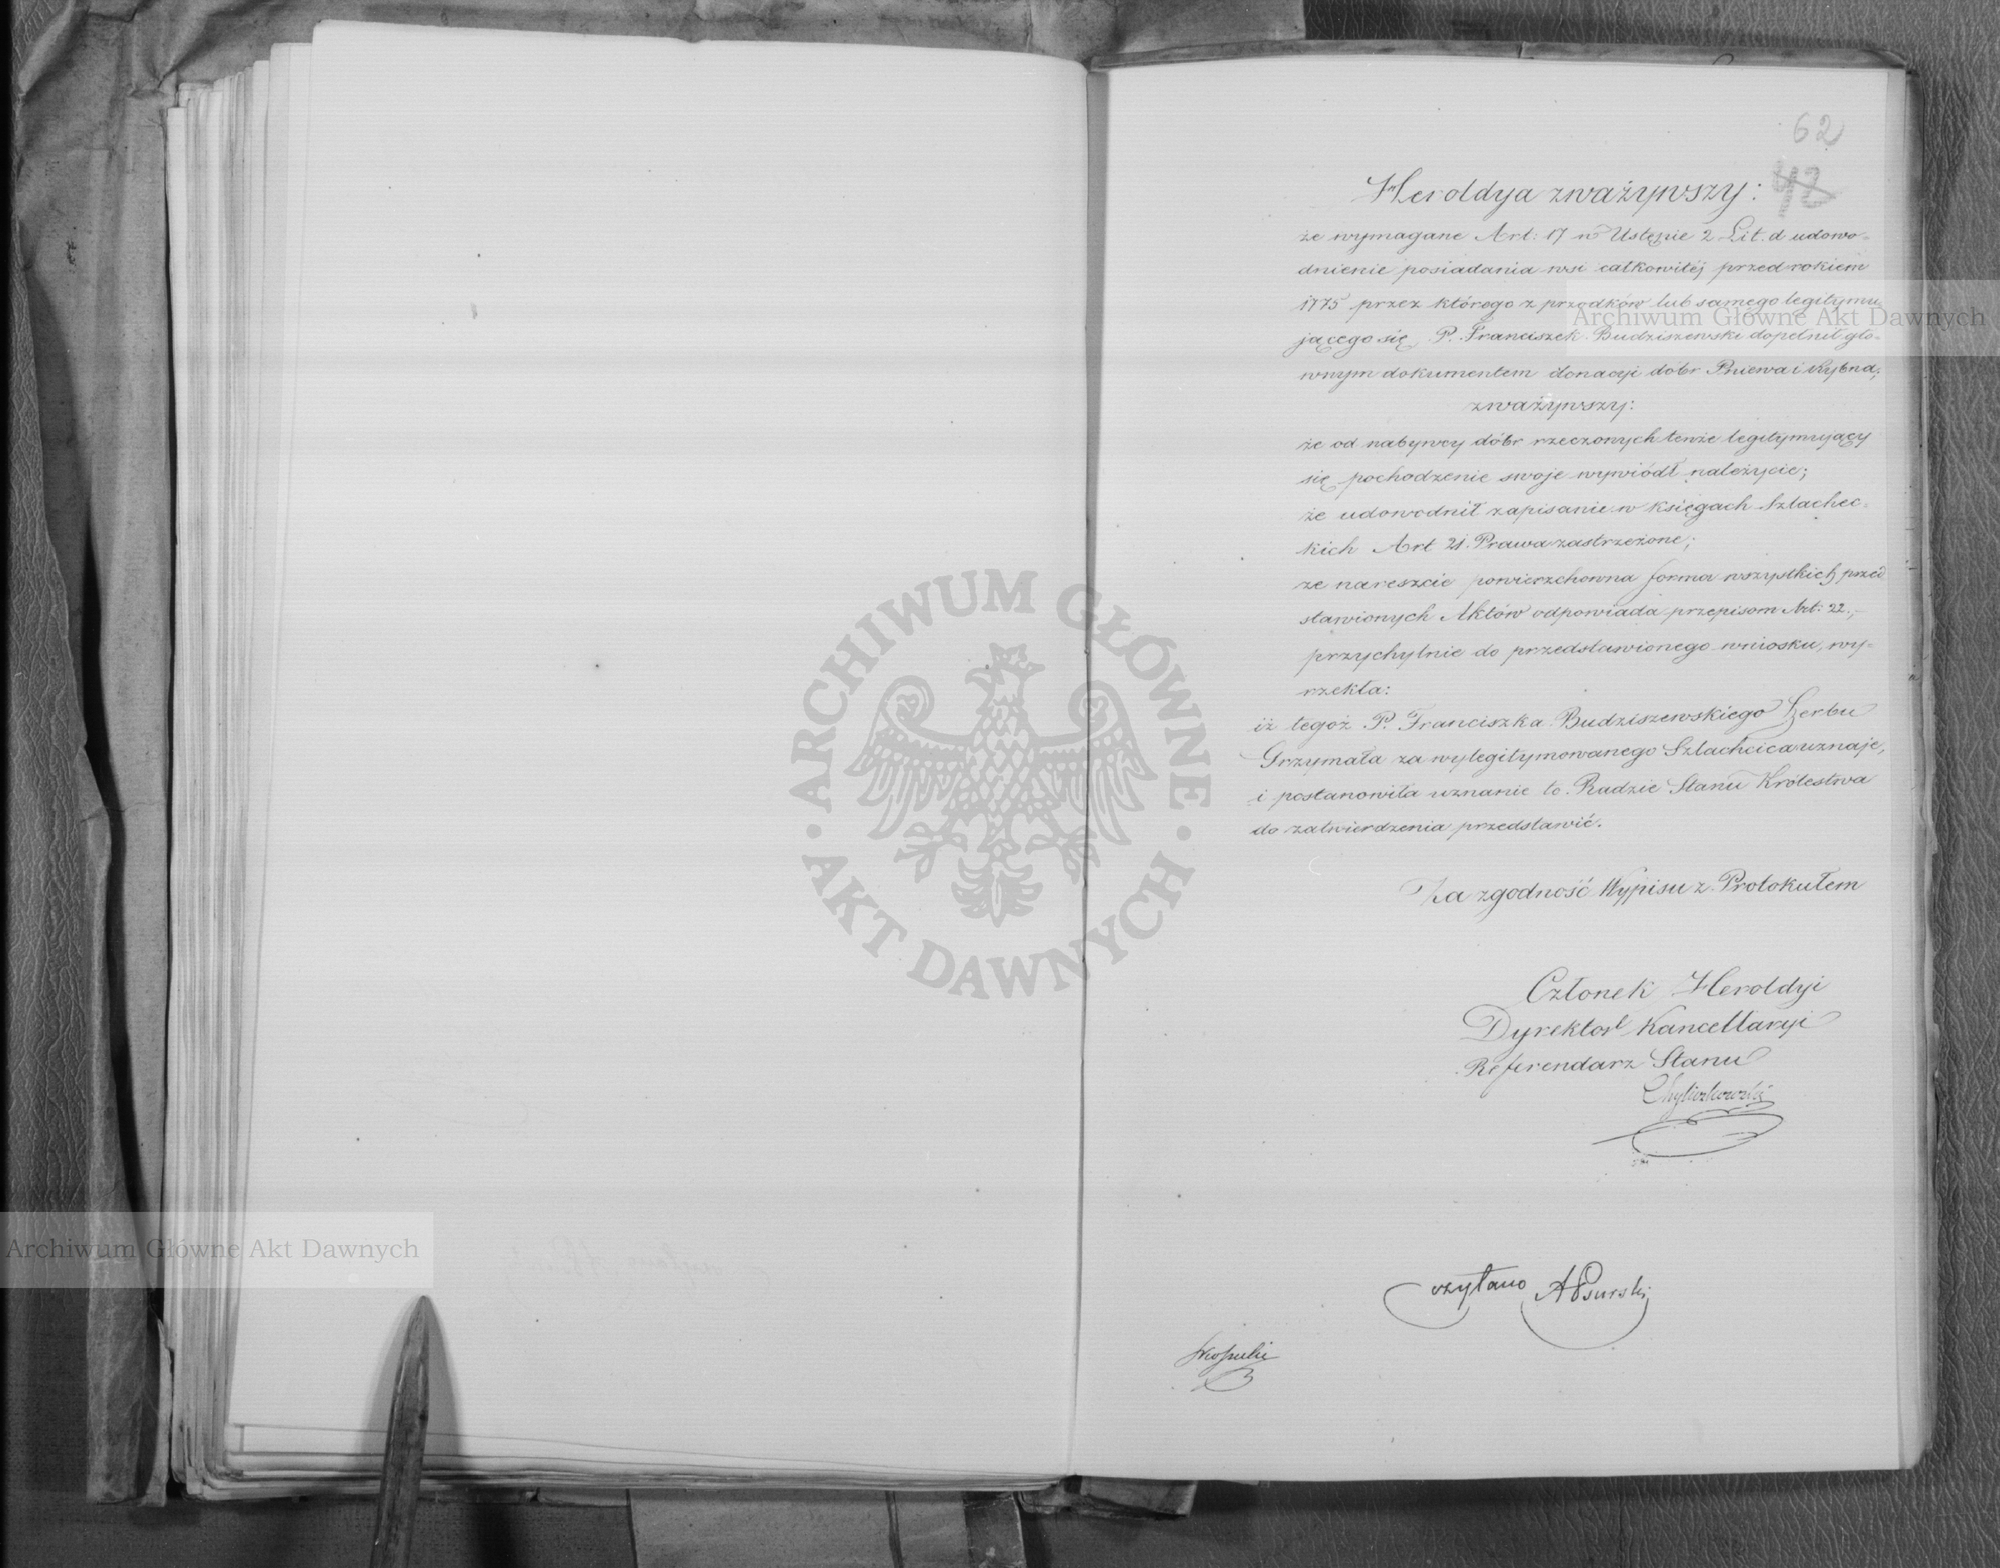 62
42
Heroldya zważywszy:
że wymagane Art: 17 w Ustępie 2 Lit. d udowo-
dnienie posiadania wsi całkowitéj przed rokiem
1775 przez którego z przodków lub samego legitymu-
jącego się, P. Franciszek Budziszewski dopełnił głó-
wnym dokumentem donacyi dóbr Pniewa i Rybna;
zważywszy:
że od nabywcy dóbr rzeczonych tenże legitymujący
się pochodzenie swoje wywiódł należycie;
że udowodnił zapisanie w księgach Szlachec-
kich Art 21. Prawa zastrzeżone;
że nareszcie powierzchowna forma wszystkich przed
stawionych Aktów odpowiada przepisom Art: 22.,-
przychylnie do przedstawionego wniosku, wy-
rzekła:
iż tegoż P. Franciszka Budziszewskiego herbu
Grzymała za wylegitymowanego Szlachcica uznaje,
i postanowiła uznanie to Radzie Stanu Królestwa
do zatwierdzenia przedstawić.
Za zgodność Wypisu z Protokułem
Członek Heroldyi
Dyrektor Kancellaryi
Referendarz Stanu
Chyliczkowski
czytano A Psurski
Archiwum Główne Akt Dawnych
Archiwum Główne Akt Dawnych
ARCHIWUM GŁÓWNE
AKT DAWNYCH